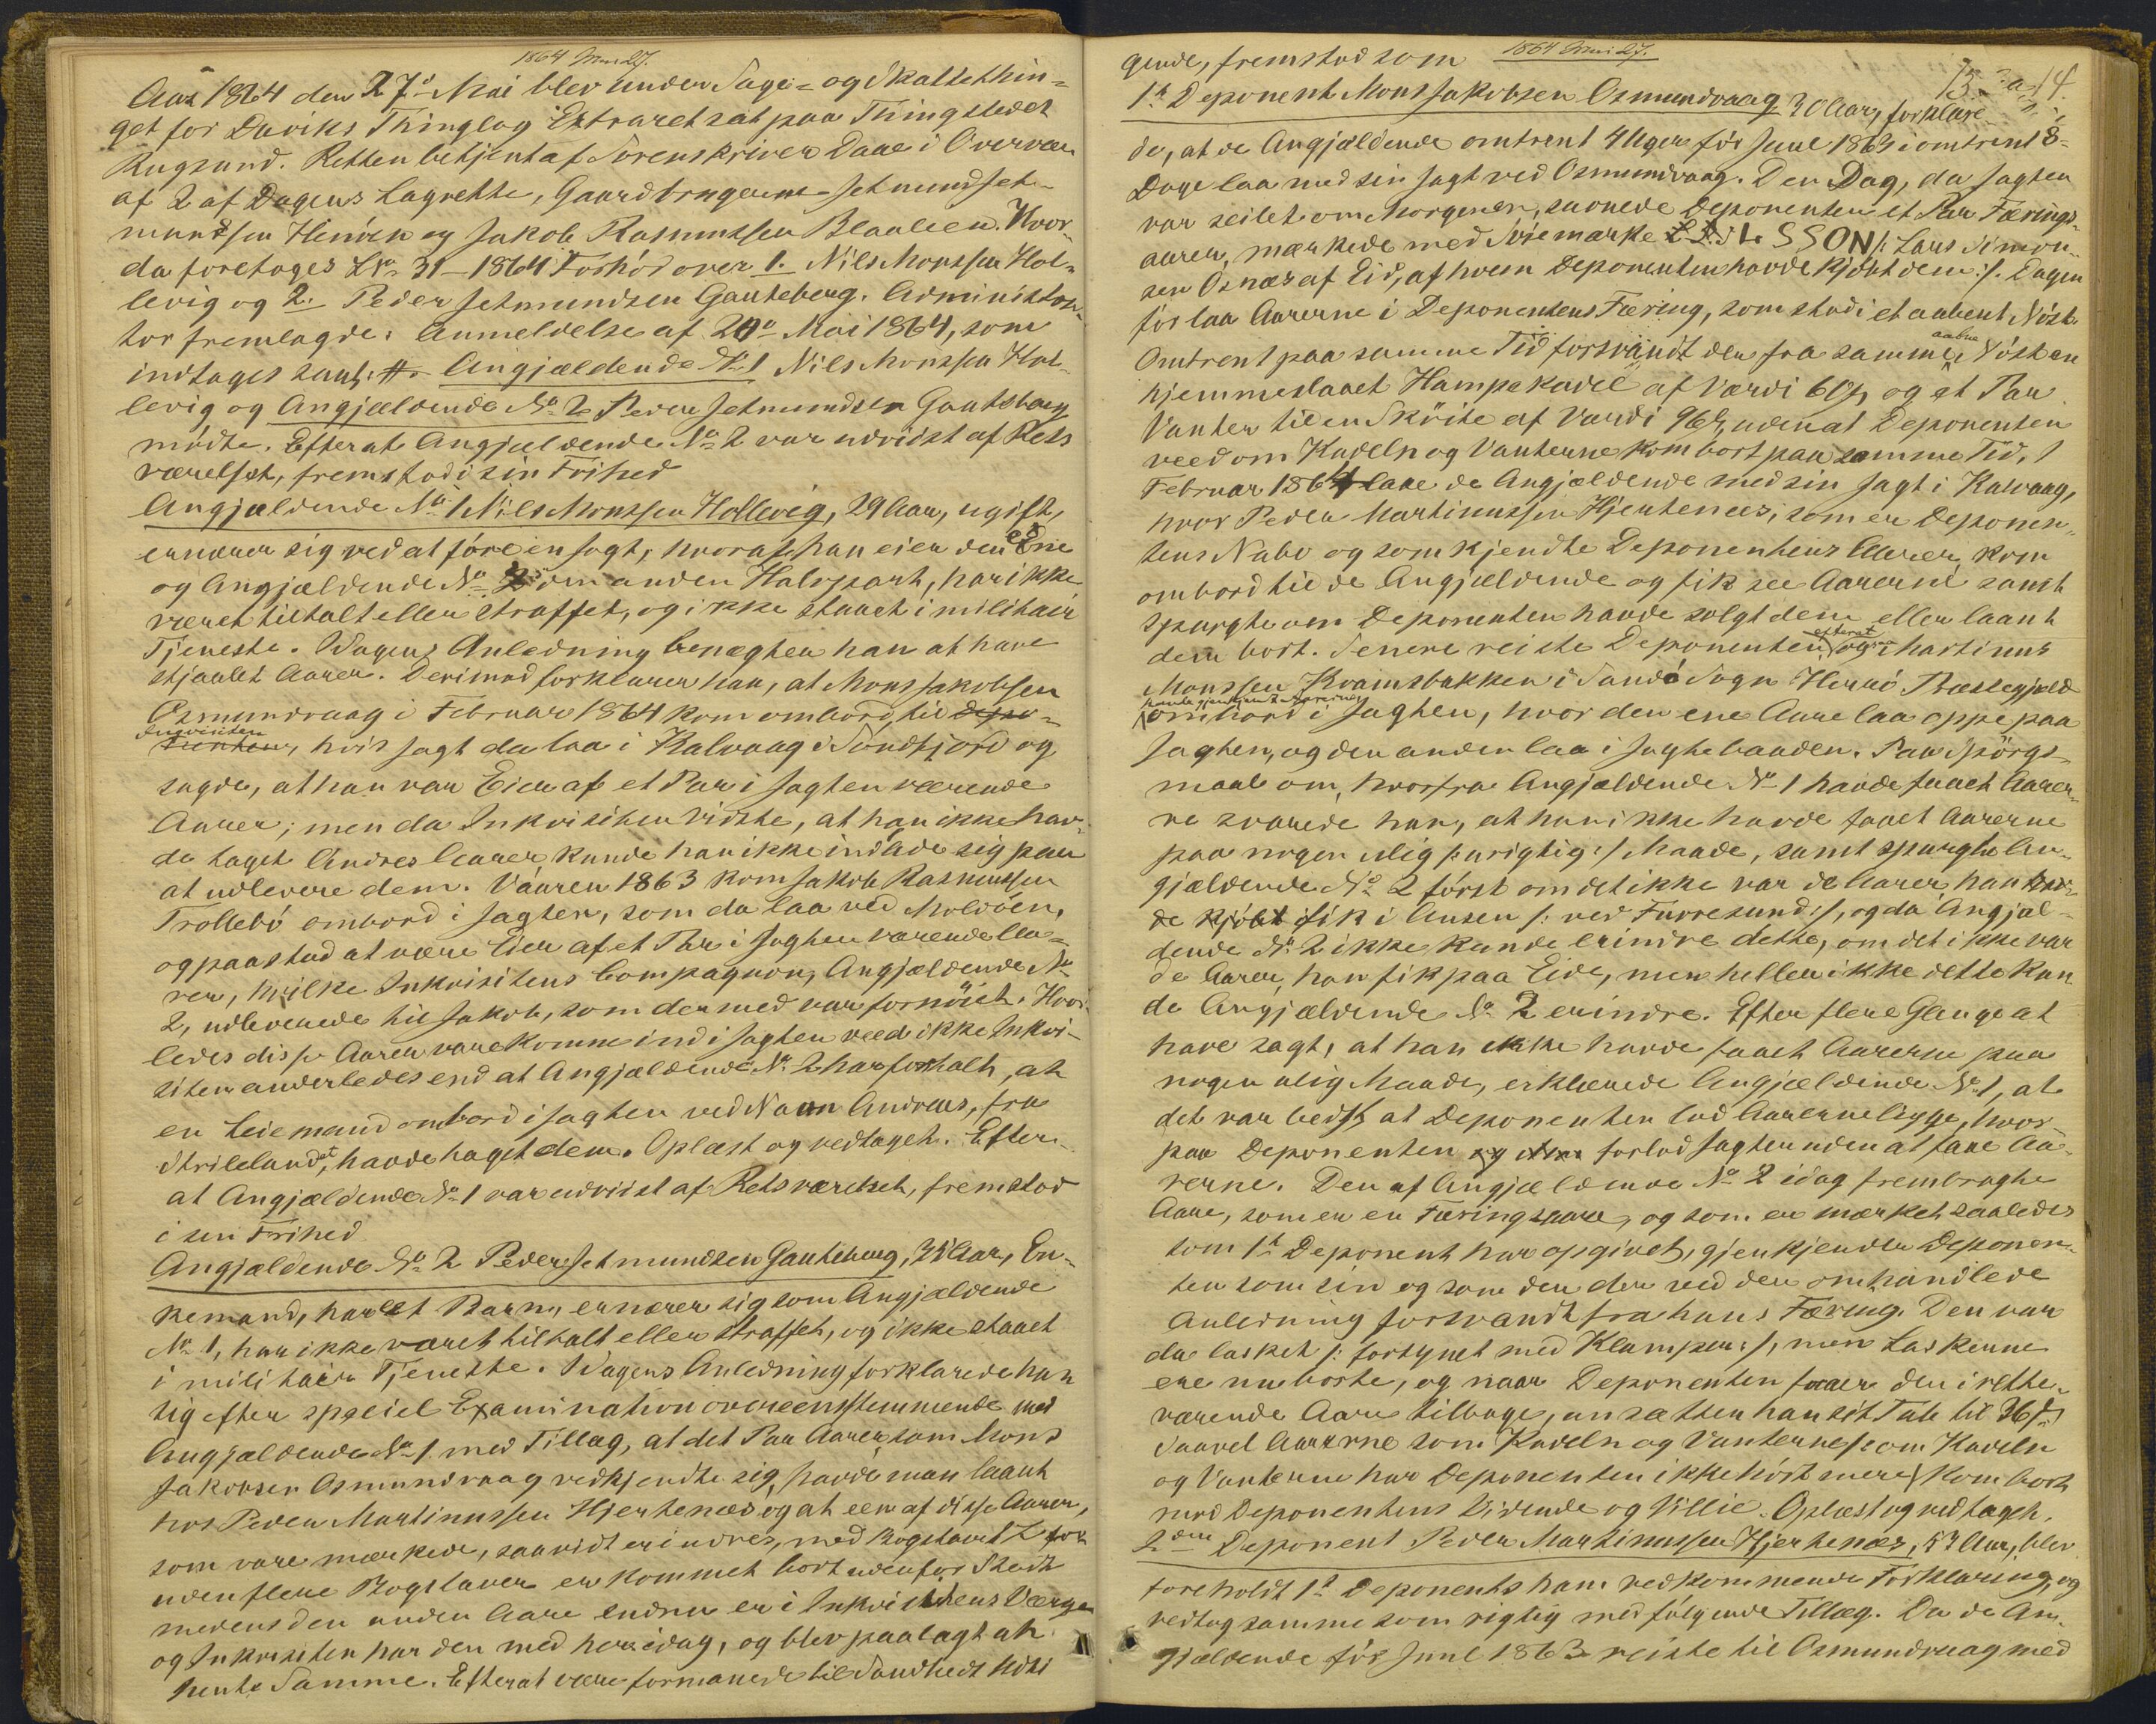 1864 Mai 27.
Aar 1864 den 27de Mai blev under Sage- og Skattethin-
get for Daviks Thinglag Extraret sat paa Thingstedet
Rugsund. Retten betjent af Sorenskriver Daae i Overvær
af 2 af Dagens Lagrette, Gaardbrugerne Setmund Set-
mundsen Hennøen og Jakob Rasmussen Blaalien. Hvor-
da foretoges No 31-1864 Forhør over 1. Nils Monssen Hol-
levig og 2. Peder Setmundsen Gauteberg. Administra-
tor fremlagde: Anmeldelse af 20de Mai 1864, som
indtages saal: #. Angjældende No 1 Nils Monssen Hol-
levig og Angjældende No 2 Peder Setmundsen Gauteberg
mødte. Efterat Angjældende No 2 var udviist af Rets
værelset, fremstod i sin Frihed
Angjældende No 1 Nils Monssen Hollevig, 29 Aar, ugift,
ernærer sig ved at føre en Jagt, hvoraf han eier den ene
og Angjældende No 2 den anden Halvpart, har ikke
været tiltalt eller straffet, og ikke staaet i militair
Tjeneste. I Dagens Anledning benægter han at have
stjaalet Aarer. Derimod forklarer han, at Mons Jakobsen
Osmundvaag i Februar 1864 kom ombord til Depo-
Inqvisiten
nenten, hvis Jagt da laa i Kalvaag i Søndfjord og
sagde, at han var Eier af et Par i Jagten værende
Aarer; men da Inkvisiten vidste, at han ikke hav-
de taget Andres Aarer kunde han ikke indlade sig paa
at udlevere dem. Vaaren 1863 kom Jakob Rasmussen
Trollebø ombord i Jagten, som da laa ved Moldøen,
og paastod at være Eier af et Par i Jagten værende Aa-
rer, hvilke Inkvisitens Compagnon, Angjældende No
2, udleverede til Jakob, som dermed var fornøiet. Hvor-
ledes disse Aarer vare komne ind i Jagten veed ikke Inkvi-
siten anderledes end at Angjældende No 2 har fortalt, at
en Leiemand ombord i Jagten ved Navn Andreas, fra
Strilelandet, havde taget dem. Oplæst og vedtaget. Efter
at Angjældende No 1 var udviist af Retsværelset, fremstod
i sin Frihed
Angjældende No 2 Peder Setmundsen Gauteberg, 35 Aar, En-
kemand, har et Barn, ernærer sig som Angjældende
No 1, har ikke været tiltalt eller straffet, og ikke staaet
i militair Tjeneste. I Dagens Anledning forklarede han
sig efter speciel Examination overeenstemmende med
Angjældende No 1 med Tillæg, at det Par Aarer, som Mons
Jakobsen Osmundvaag vedkjendte sig, havde man laant
hos Peder Martinussen Hjertenæs og at een af disse Aarer,
som vare mærkede, saavidt erindres, med Bogstavet L for-
uden flere Bogstaver er kommet bort udenfor Stadt
medens den anden Aare endnu er i Inkvisitens Værge
og Inkvisiten har den med her idag, og blev paalagt at
hente Samme. Efterat være formanede til Sandhed
1864 Mai 27.
gende, fremstod som
1ste Deponent Mons Jakobsen Osmundvaag 30 Aar, forklare-
de, at de Angjældende omtrent 4 Uger før Juul 1863 i omtrent 8
Dage laa med sin Jagt ved Osmundvaag. Den Dag, da Jagten
var seilet om Morgenen, savnede Deponenten et Par Færings-
aarer, mærkede med Svimærke L SSON /: Lars Simon-
sen Osnæs af Eid, af hvem Deponenten havde kjøbt dem :/. Dagen
før laa Aarerne i Deponentens Færing, som stod i et aabent Nøst.
aabne
Omtrent paa samme Tid forsvandt der fra samme Nøst en
hjemmeslaaet Hampekadel af Værdi 60 s og et Par
Vanter til en Skøite af Værdi 96 s, uden at Deponenten
veed om Kadeln og Vanterne kom bort paa samme Tid. I
Februar 1864 laae de Angjældende med sin Jagt i Kalvaag,
hvor Peder Martinussen Hjertenæs, som er Deponen-
tens Nabo og som kjendte Deponentens Aarer, kom
ombord til de Angjældende og fik see Aarerne samt
spurgte om Deponenten havde solgt dem eller laant
efterat
dem bort. Senere reiste Deponenten og Martinus
Monssen Kvamsbakken i Sandø Sogn Herø Præstegjeld
ombord i Jagten, hvor den ene Aare laa oppe paa
Jagten, og den anden laa i Jagtebaaden. Paa Spørgs-
maal om, hvorfra Angjældende No 1 havde faaet Aarer-
ne svarede han, at han ikke havde faaet Aarerne
paa nogen ulig /: urigtig :/ Maade, samt spurgte An-
gjældende No 2 først om det ikke var de Aarer, han hav-
de kjøbt fik i Ausen /: ved Furresund :/, og da Angjæl-
dende No 2 ikke kunde erindre dette, om det ikke var
de Aarer, han fik paa Eide, men heller ikke dette kun-
de Angjældende No 2 erindre. Efter flere Gange at
have sagt, at han ikke havde faaet Aarerne paa
nogen ulig Maade, erklærede Angjældende No 1, at
det var bedst at Deponenten lod Aarerne ligge, hvor-
paa Deponenten forlod Jagten uden at faae Aa-
rerne. Den af Angjældende No 2 idag frembragte
Aare, som er en Færingsaare, og som er mærket saaledes
som 1ste Deponent har opgivet, gjenkjender Deponen-
ten som sin og som den der ved den omhandlede
Anledning forsvandt fra hans Færing. Den var
da lasket /: forsynet med Klamper :/, men Laskerne
ere nu borte, og naar Deponenten faaer den i rette-
værende Aare tilbage, ansætter han sit Tab til 36 s.
Saavel Aarerne som Kadeln og Vanterne /: om Kadeln
og Vanterne har Deponenten ikke hørt mere :/ kom bort
mod Deponentens Vidende og Villie. Oplæst og vedtaget.
2den Deponent Peder Martinussen Hjertenæs, 53 Aar, blev
foreholdt 1ste Deponents ham vedkommende Forklaring, og
vedtog samme som rigtig med følgende Tillæg. Da de An-
gjældende før Juul 1863 reiste til Osmundvaag med